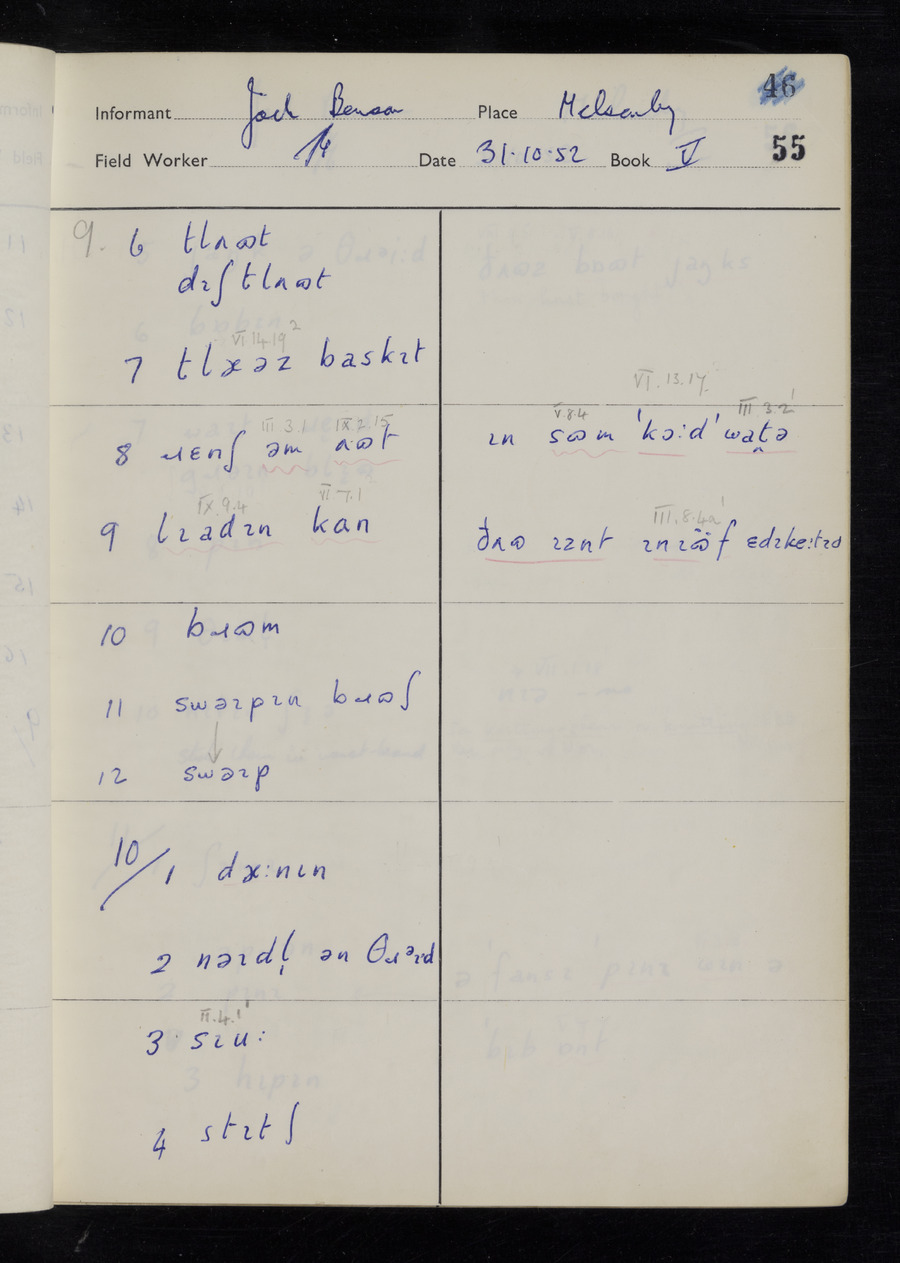 46
Informant Jack Benson Place Melsonby
Field Worker Date 31·10·52 Book V 55
9. 6 tlʌɷt
dɪʃtlʌɷt
VI 14.19²
7 tlæəz baskɪt
VI.13.17
III 3.1 IX.2.15 V.8.4 III.3.2¹
8 ɹɛnʃ əm ʌɷt ɪn sɷm ˈkɔ:d ˈwat̪ə
IX.9.4 VI.7.1 III.8.4a¹
9 lɪadɪn kan ðʌɷ ɪznt ɪnɪɷ̈f ɛdɪke:tɪd
10 bɹɷm
11 swəɪpɪn bɹɷʃ
12 swəɪp
10/1 dæ:nɪn
2 nəɪdl̩ ən θɹəɪd
II.4.1¹
3 sɪu:
4 stɪtʃ